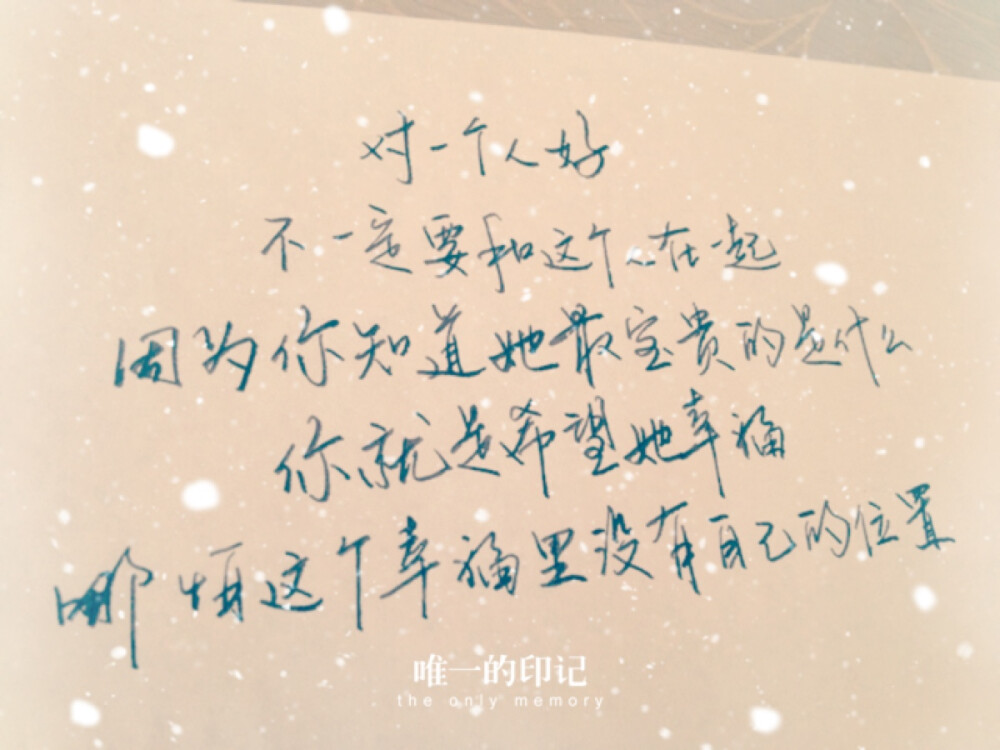 对一个人好
不一定要和这个人在一起
因为你知道她最宝贵的是什么
你就是希望她幸福
哪怕这个幸福里没有自己的位置
唯一的印记
the only memory